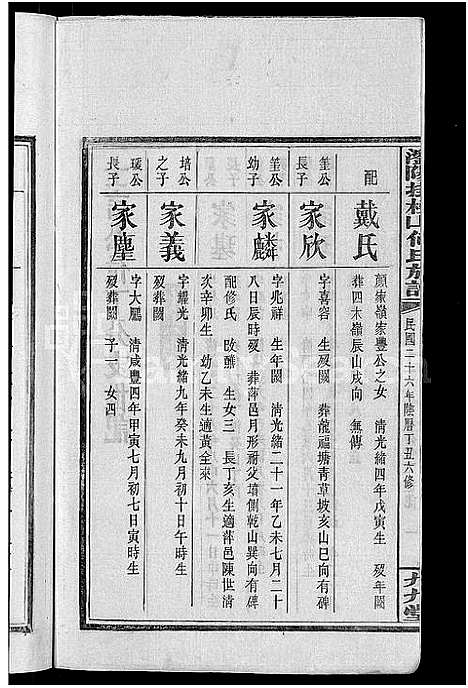 民國二十六年陰曆丁丑六修
配
戴氏
顏家嶺家豐公之女 清光緒四年戊寅生 歿年闕
葬四木嶺辰山戌向 無傳
笙公
長子
家欣
字喜容 生歿闕 葬龍福塘青草坡亥山巳向有碑
笙公
幼子
家麟
字兆祥 生年闕 清光緒二十一年乙未七月二十
八日辰時歿 葬萍邑月形祔父墳側乾山巽向有碑
配修氏 改醮 生女三 長丁亥生適萍邑陳世清
次辛卯生 幼乙未生適黃全來
培公
之子
家義
字耀光 清光緒九年癸未九月初十日午時生
歿葬闕
長子
家塵
字大鵬 清咸豐四年甲寅七月初七日寅時生
歿葬闕 子一 女四